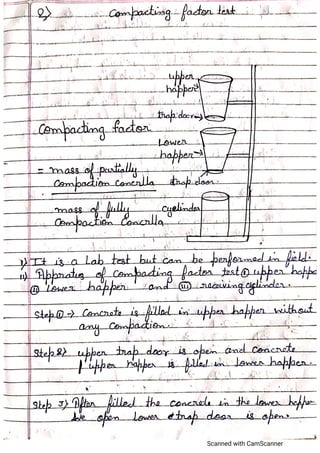 Q) Compacting factor test
upper
happer
trap door
Compacting factor
Lower
happer
= mass of partially
Compaction Concrlla trap door
mass of fully cyelinder
Compaction Concrlla
i) It is a Lab test but can be performed in field.
ii) Appratus of Compacting factor test ① upper happe
② lower happer and ③ receiving cylinder.
Step ① → Concrete is filled in upper happer without
any Compaction.
Step 2) upper trap door is open and Concrete
upper happer is filled in lower happer.
Step 3) After filled the concrete in the lower happer
we open lower trap door is open.
Scanned with CamScanner